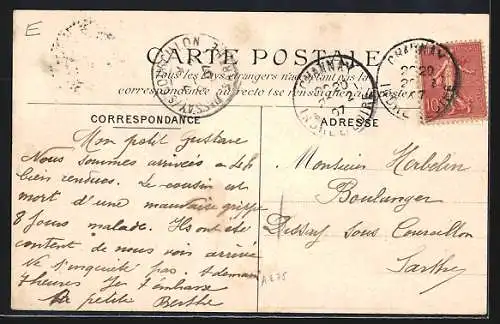 E
CARTE POSTALE
Tous les pays étrangers n'acceptent pas la
correspondance au recto (se renseigner à la poste)
CORRESPONDANCE
ADRESSE
CHARNAY
20
2
07
INDRE
CHARNAY
20
2
INDRE
10
Mon petit Gustave
Nous sommes arrivées à
bien rendues. Le cousin est
mort d'une mauvaise grippe
8 jours malade. Ils ont été
content de nous voir arrivée
Ne s'inquiète pas. A demain
7 heures Je t'embrasse
Ta petite Berthe
Monsieur Herbelin
Boulanger
Dissay sous Courcillon
Sarthe